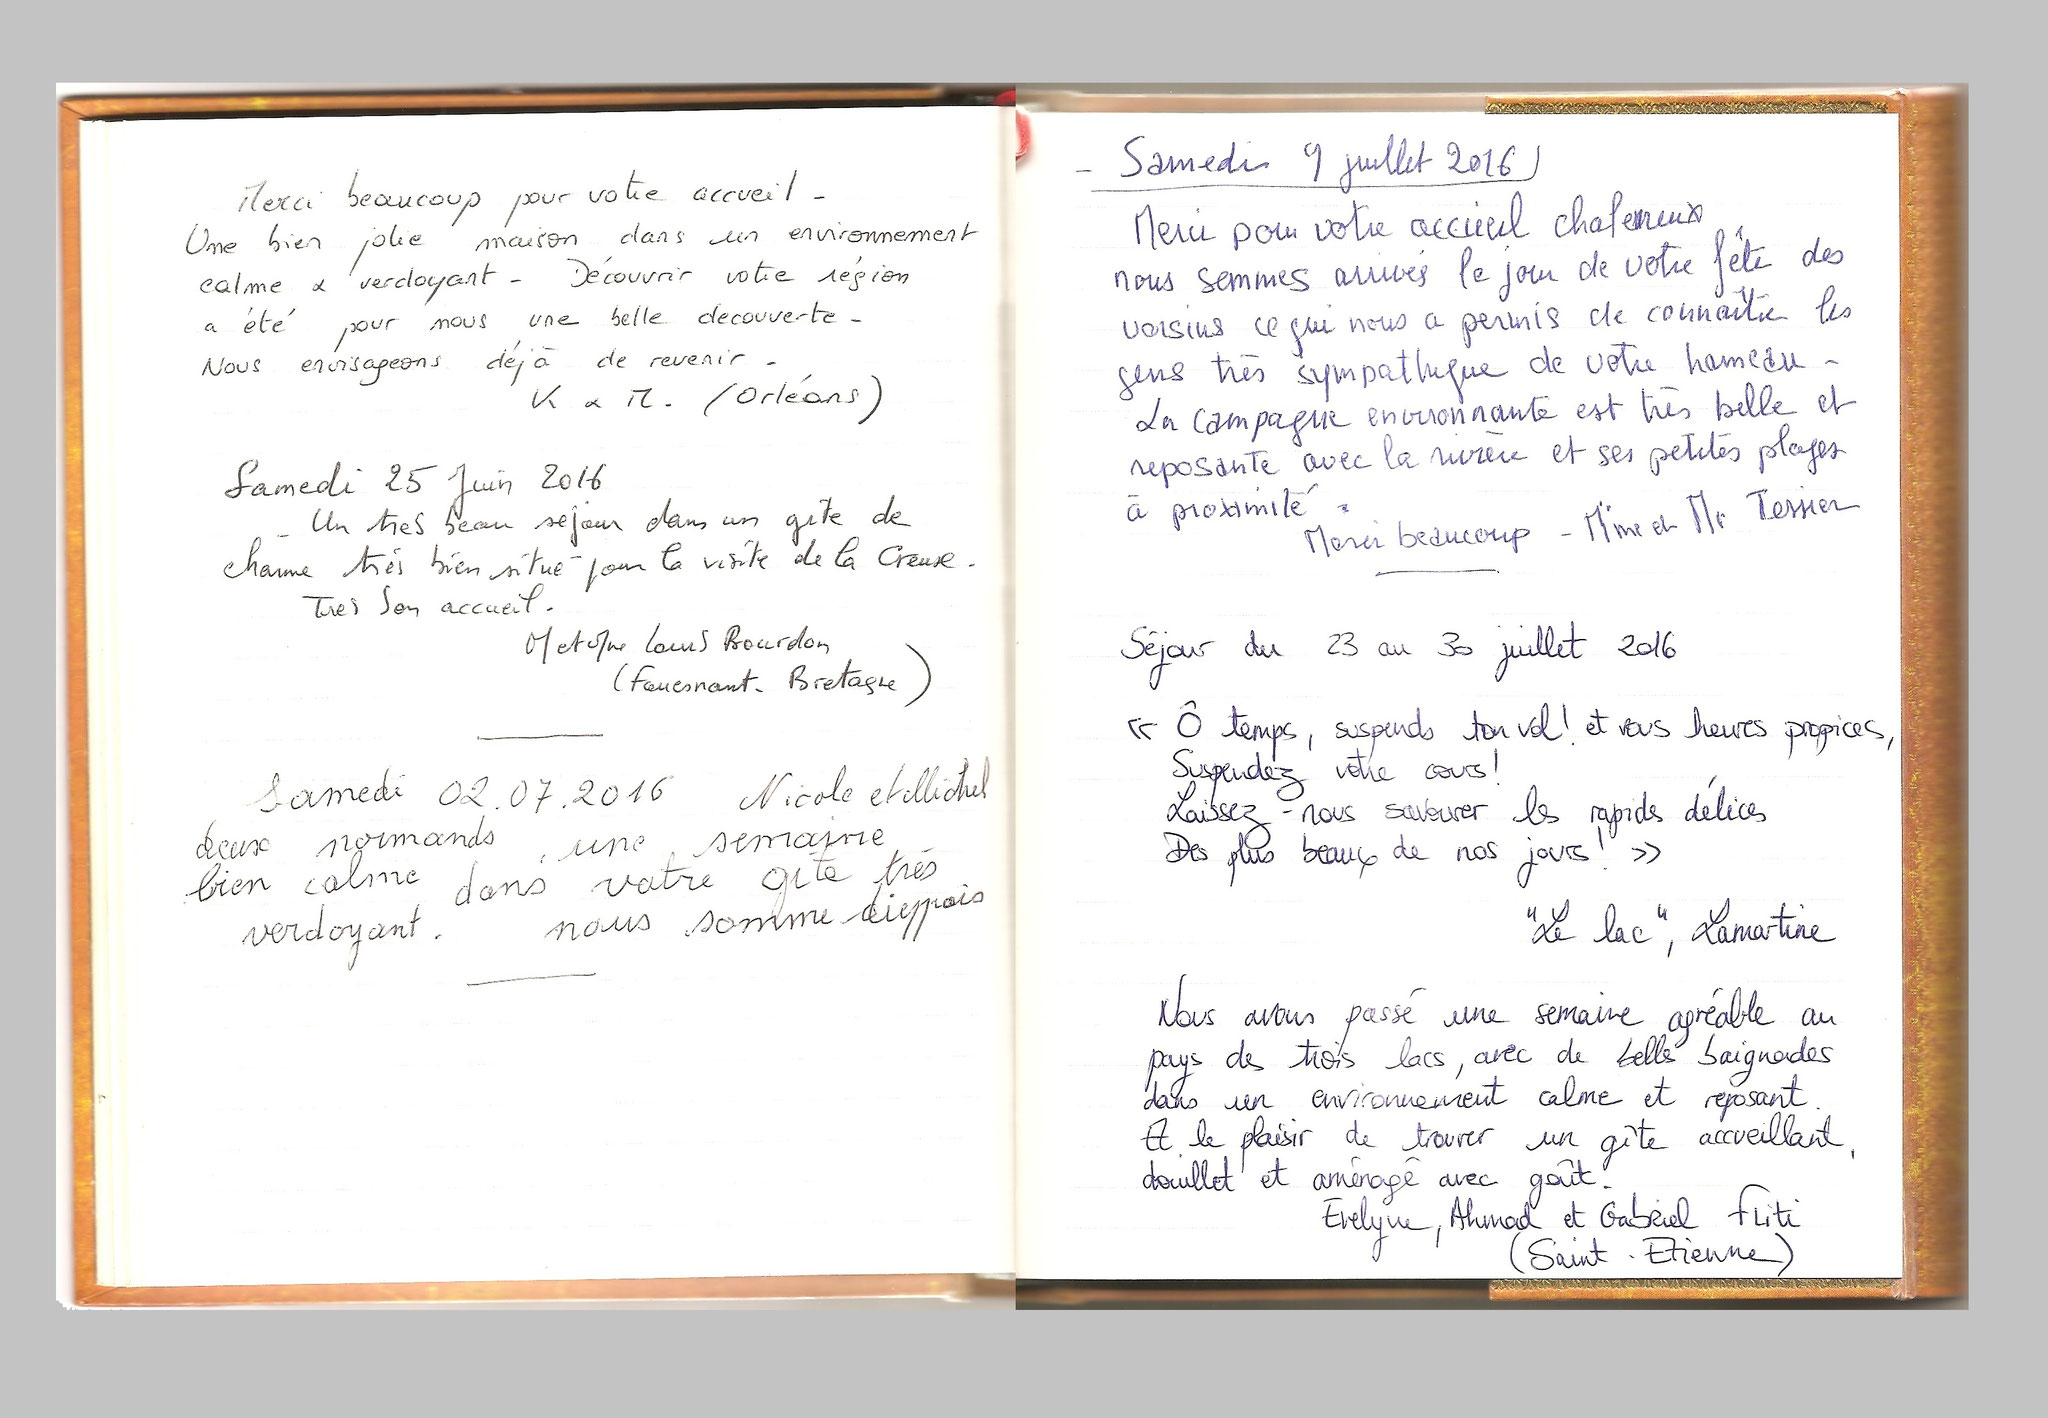 Merci beaucoup pour votre accueil -
Une bien jolie maison dans un environnement
calme & verdoyant - Découvrir votre région
a été pour nous une belle decouverte -
Nous envisageons déjà de revenir -
K & M. (Orléans)
Samedi 25 Juin 2016
- Un très beau séjour dans un gîte de
charme très bien situé pour la visite de la Creuse.
Très bon accueil.
M et Mme Louis Bourdon
(Fouesnant - Bretagne)
Samedi 02.07.2016 Nicole et Michel
deux normands, une semaine
bien calme dans votre gîte très
verdoyant. nous somme dieppois
- Samedi 9 juillet 2016
Merci pour votre accueil chalereux
nous sommes arrivés le jour de votre fête des
voisins ce qui nous a permis de connaître les
gens très sympathique de votre hameau -
La campagne environnante est très belle et
reposante avec la rivière et ses petites plages
à proximité.
Merci beaucoup - Mme et Mr Tessier
Séjour du 23 au 30 juillet 2016
« Ô temps, suspends ton vol ! et vous heures propices,
Suspendez votre cours !
Laissez-nous savourer les rapides délices
Des plus beaux de nos jours ! »
"Le lac", Lamartine
Nous avons passé une semaine agréable au
pays des trois lacs, avec de belles baignades
dans un environnement calme et reposant.
Et le plaisir de trouver un gîte accueillant,
douillet et aménagé avec goût.
Evelyne, Ahmad et Gabriel Fliti
(Saint-Etienne)